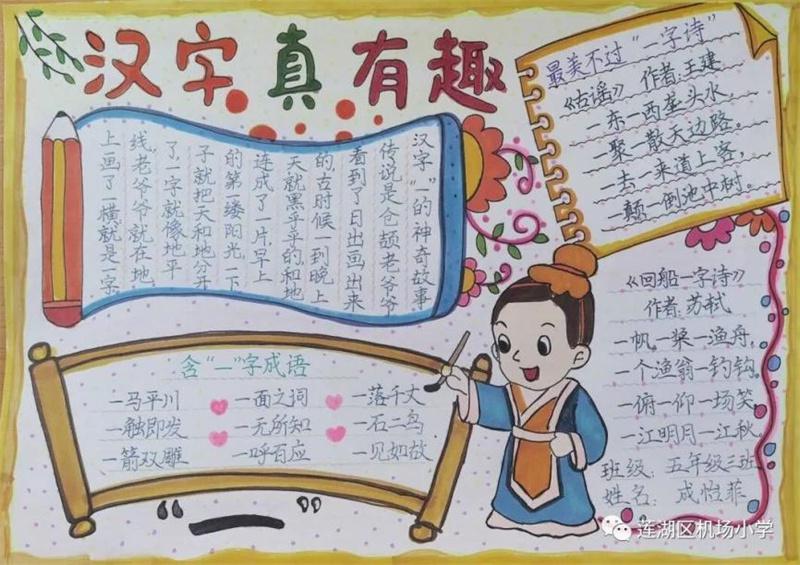 汉字真有趣
汉字"一"的神奇故事
传说是仓颉老爷爷
看到了日出画出来
的,古时候一到晚上
天就黑乎乎的,和地
连成了一片,早上
的第一缕阳光,一下
子就把天和地分开
了一字就像地平
线,老爷爷就在地
上画了一横,就是一字
最美不过"一字诗"
《古谣》 作者:王建
一东一西垄头水,
一聚一散天边路。
一去一来道上客,
一颠一倒池中树。
含"一"字成语
一马平川 一面之词 一落千丈
一触即发 一无所知 一石二鸟
一箭双雕 一呼百应 一见如故
"一"
《回船一字诗》
作者:苏轼
一帆一桨一渔舟,
一个渔翁一钓钩,
一俯一仰一场笑,
一江明月一江秋。
班级:五年级三班
姓名:成怡菲
莲湖区机场小学